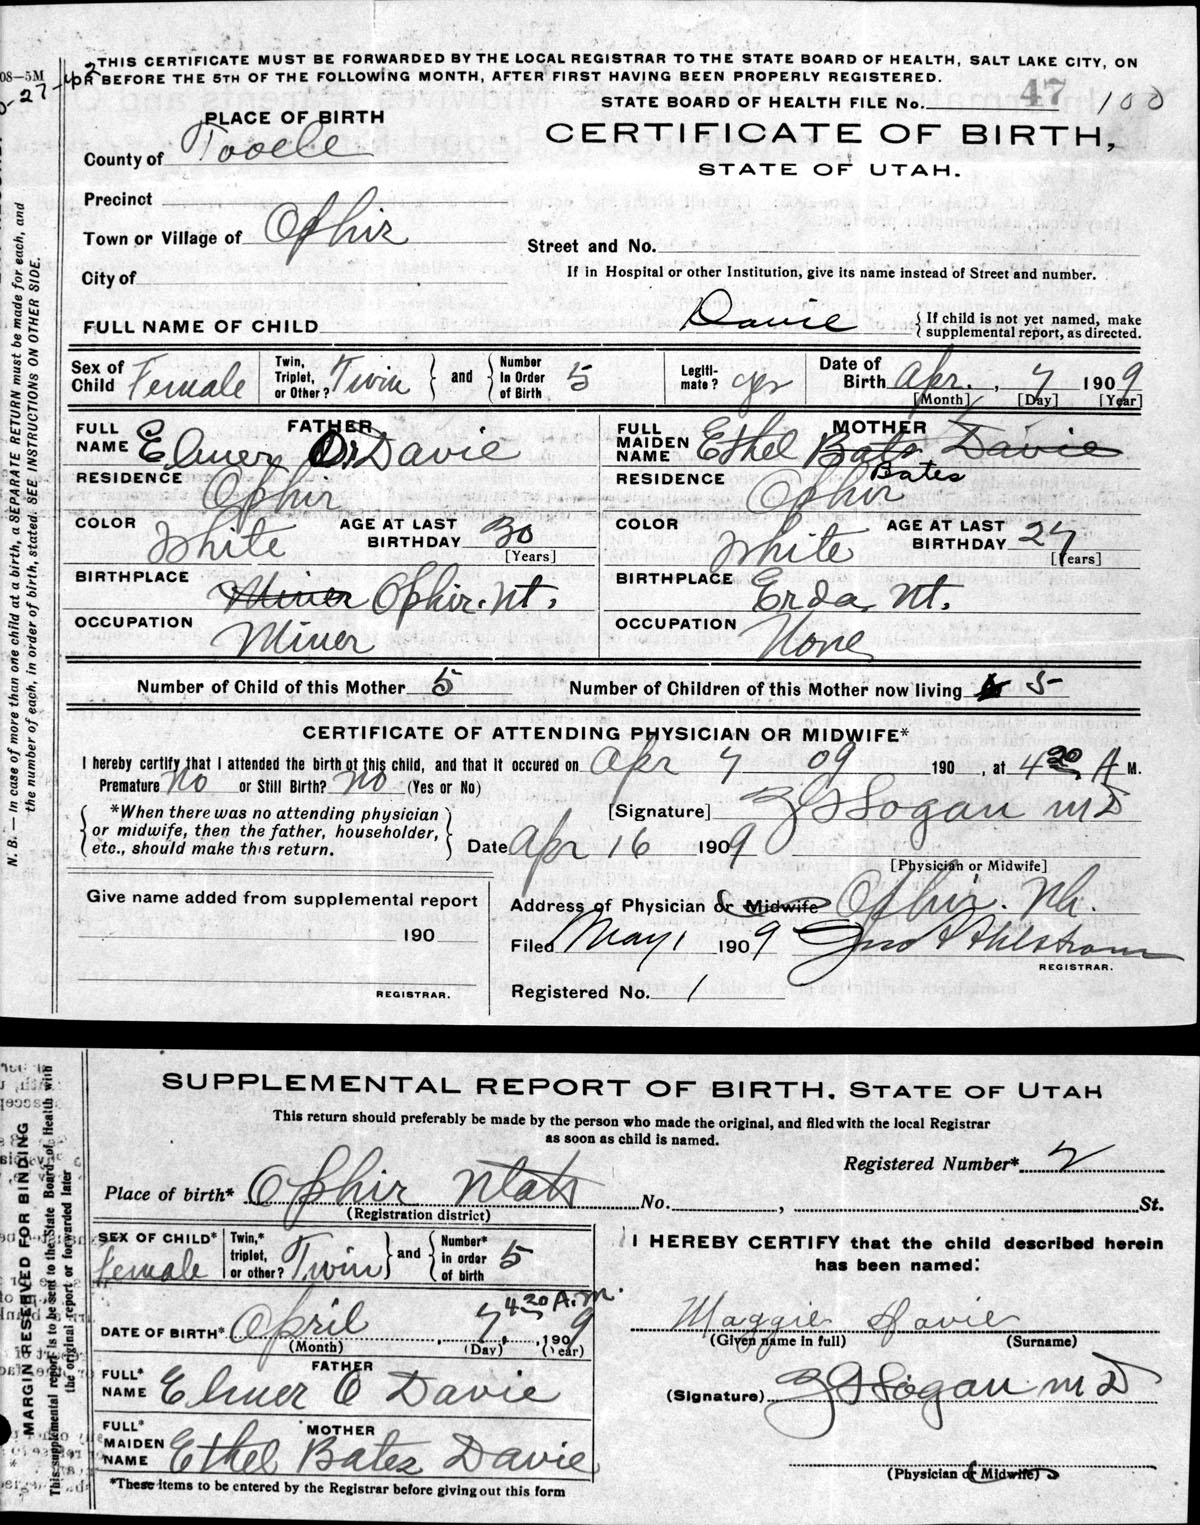 THIS CERTIFICATE MUST BE FORWARDED BY THE LOCAL REGISTRAR TO THE STATE BOARD OF HEALTH, SALT LAKE CITY, ON
OR BEFORE THE 5TH OF THE FOLLOWING MONTH, AFTER FIRST HAVING BEEN PROPERLY REGISTERED.
08—5M
STATE BOARD OF HEALTH FILE No. 47 100
PLACE OF BIRTH
CERTIFICATE OF BIRTH,
County of Tooele
STATE OF UTAH.
Precinct
Town or Village of Ophir
Street and No.
City of
If in Hospital or other Institution, give its name instead of Street and number.
FULL NAME OF CHILD Davie { If child is not yet named, make supplemental report, as directed.
Sex of Child Female Twin, Triplet, or Other? Twin } and { Number In Order of Birth 5 Legiti-mate? yes Date of Birth Apr. , 7 1909
[Month] [Day] [Year]
FULL NAME FATHER Elmer O. Davie
FULL MAIDEN NAME MOTHER Ethel Bats Davie
Bates
RESIDENCE Ophir
RESIDENCE Ophir
COLOR White AGE AT LAST BIRTHDAY 30 [Years]
COLOR White AGE AT LAST BIRTHDAY 27 [Years]
BIRTHPLACE Miner Ophir. Ut.
BIRTHPLACE Erda, Ut.
OCCUPATION Miner
OCCUPATION None
Number of Child of this Mother 5 Number of Children of this Mother now living 5
CERTIFICATE OF ATTENDING PHYSICIAN OR MIDWIFE*
I hereby certify that I attended the birth of this child, and that it occured on Apr 7 09 190 , at 4 20 A M.
Premature No or Still Birth? No (Yes or No)
[Signature] Logan M D
{ *When there was no attending physician or midwife, then the father, householder, etc., should make this return. }
Date Apr 16 1909
[Physician or Midwife]
Give name added from supplemental report
Address of Physician or Midwife Ophir.
190
Filed May 1 1909 Ahlstrom
REGISTRAR.
REGISTRAR.
Registered No. 1
N. B.—In case of more than one child at a birth, a SEPARATE RETURN must be made for each, and
the number of each, in order of birth, stated. SEE INSTRUCTIONS ON OTHER SIDE.
SUPPLEMENTAL REPORT OF BIRTH, STATE OF UTAH
This return should preferably be made by the person who made the original, and filed with the local Registrar
as soon as child is named.
Registered Number* 2
Place of birth* Ophir Utah No. , St.
(Registration district)
SEX OF CHILD* Female Twin,* triplet, or other? Twin } and { Number* in order of birth 5
I HEREBY CERTIFY that the child described herein
has been named:
4 20 A.M.
DATE OF BIRTH* April , 7 , 1909
(Month) (Day) (Year)
Maggie Davie
(Given name in full) (Surname)
FULL* NAME FATHER Elmer O Davie
(Signature) Logan M D
FULL* MAIDEN NAME MOTHER Ethel Bates Davie
(Physician or Midwife)
*These items to be entered by the Registrar before giving out this form
MARGIN RESERVED FOR BINDING
This supplemental report is to be sent to the State Board of Health with
the original report or forwarded later